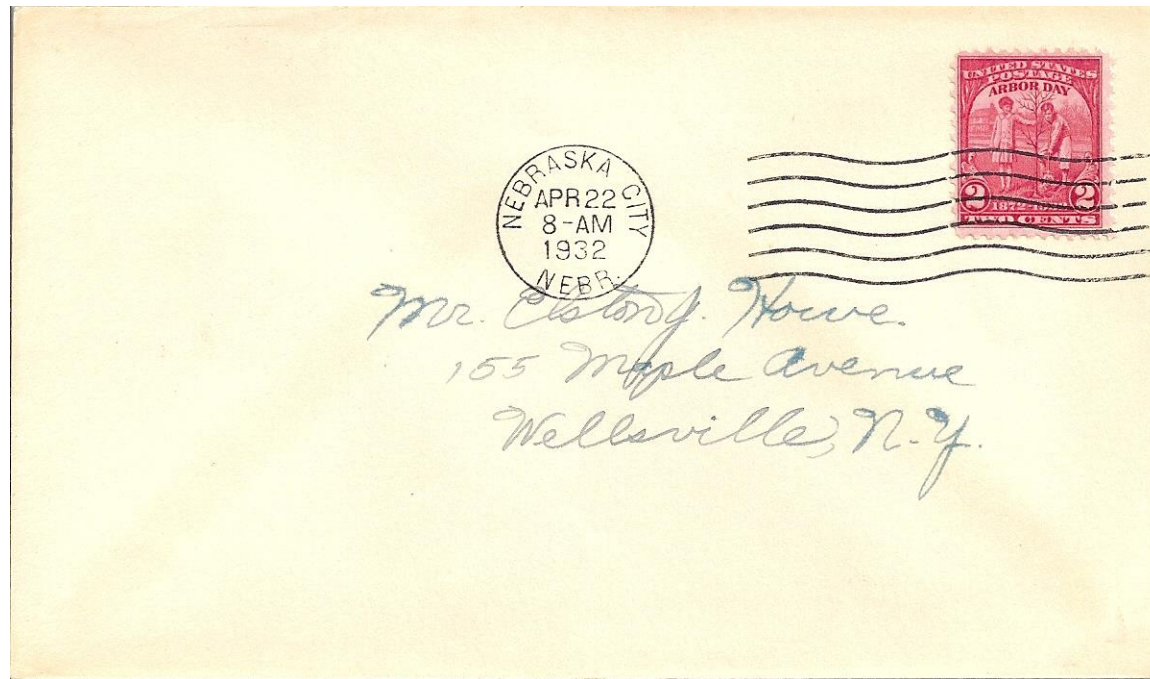 UNITED STATES
POSTAGE
ARBOR DAY
2 2
1872-1932
TWO CENTS
NEBRASKA CITY
APR 22
8-AM
1932
NEBR.
Mr. Elston J. Howe.
155 Maple Avenue
Wellsville, N.Y.